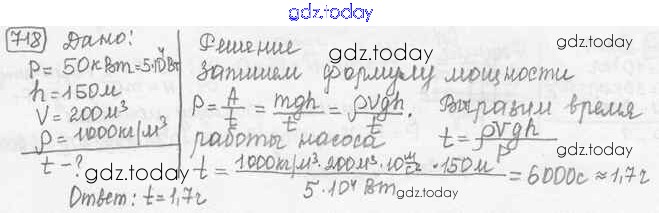 gdz.today
718 Дано:
P = 50кВт = 5·10⁴Вт
h = 150м
V = 200м³
ρ = 1000кг/м³
t - ?
Решение
gdz.today gdz.today
Запишем формулу мощности
P = A/t = mgh/t = ρVgh/t. Выразим время
работы насоса t = ρVgh/P
gdz.today gdz.today
t = 1000кг/м³·200м³·10 м/с²·150м / 5·10⁴ Вт = 6000с ≈ 1,7г
Ответ: t = 1,7г
gdz.today
gdz.today